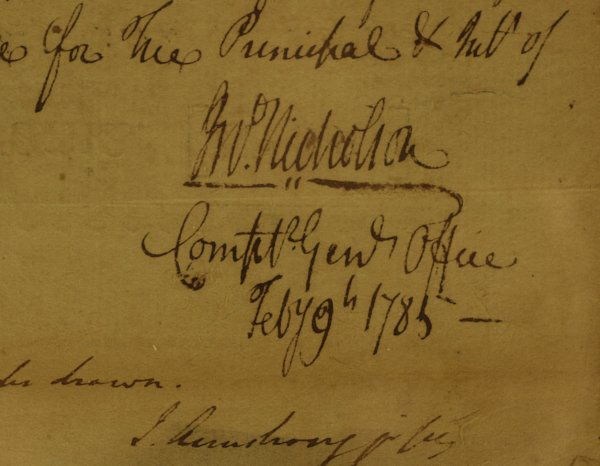 for the Principal & Intt of
Jno. Nicholson
Comptr. Genls Office
Feby 9th 1785 —
drawn.
J. Armstrong jr